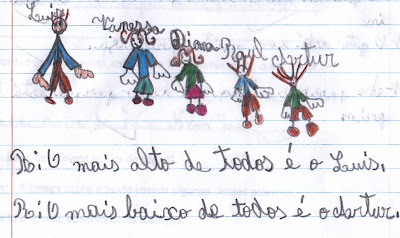 Luis Vanessa Diana Raul Artur
R: O mais alto de todos é o Luis.
R: O mais baixo de todos é o Artur.